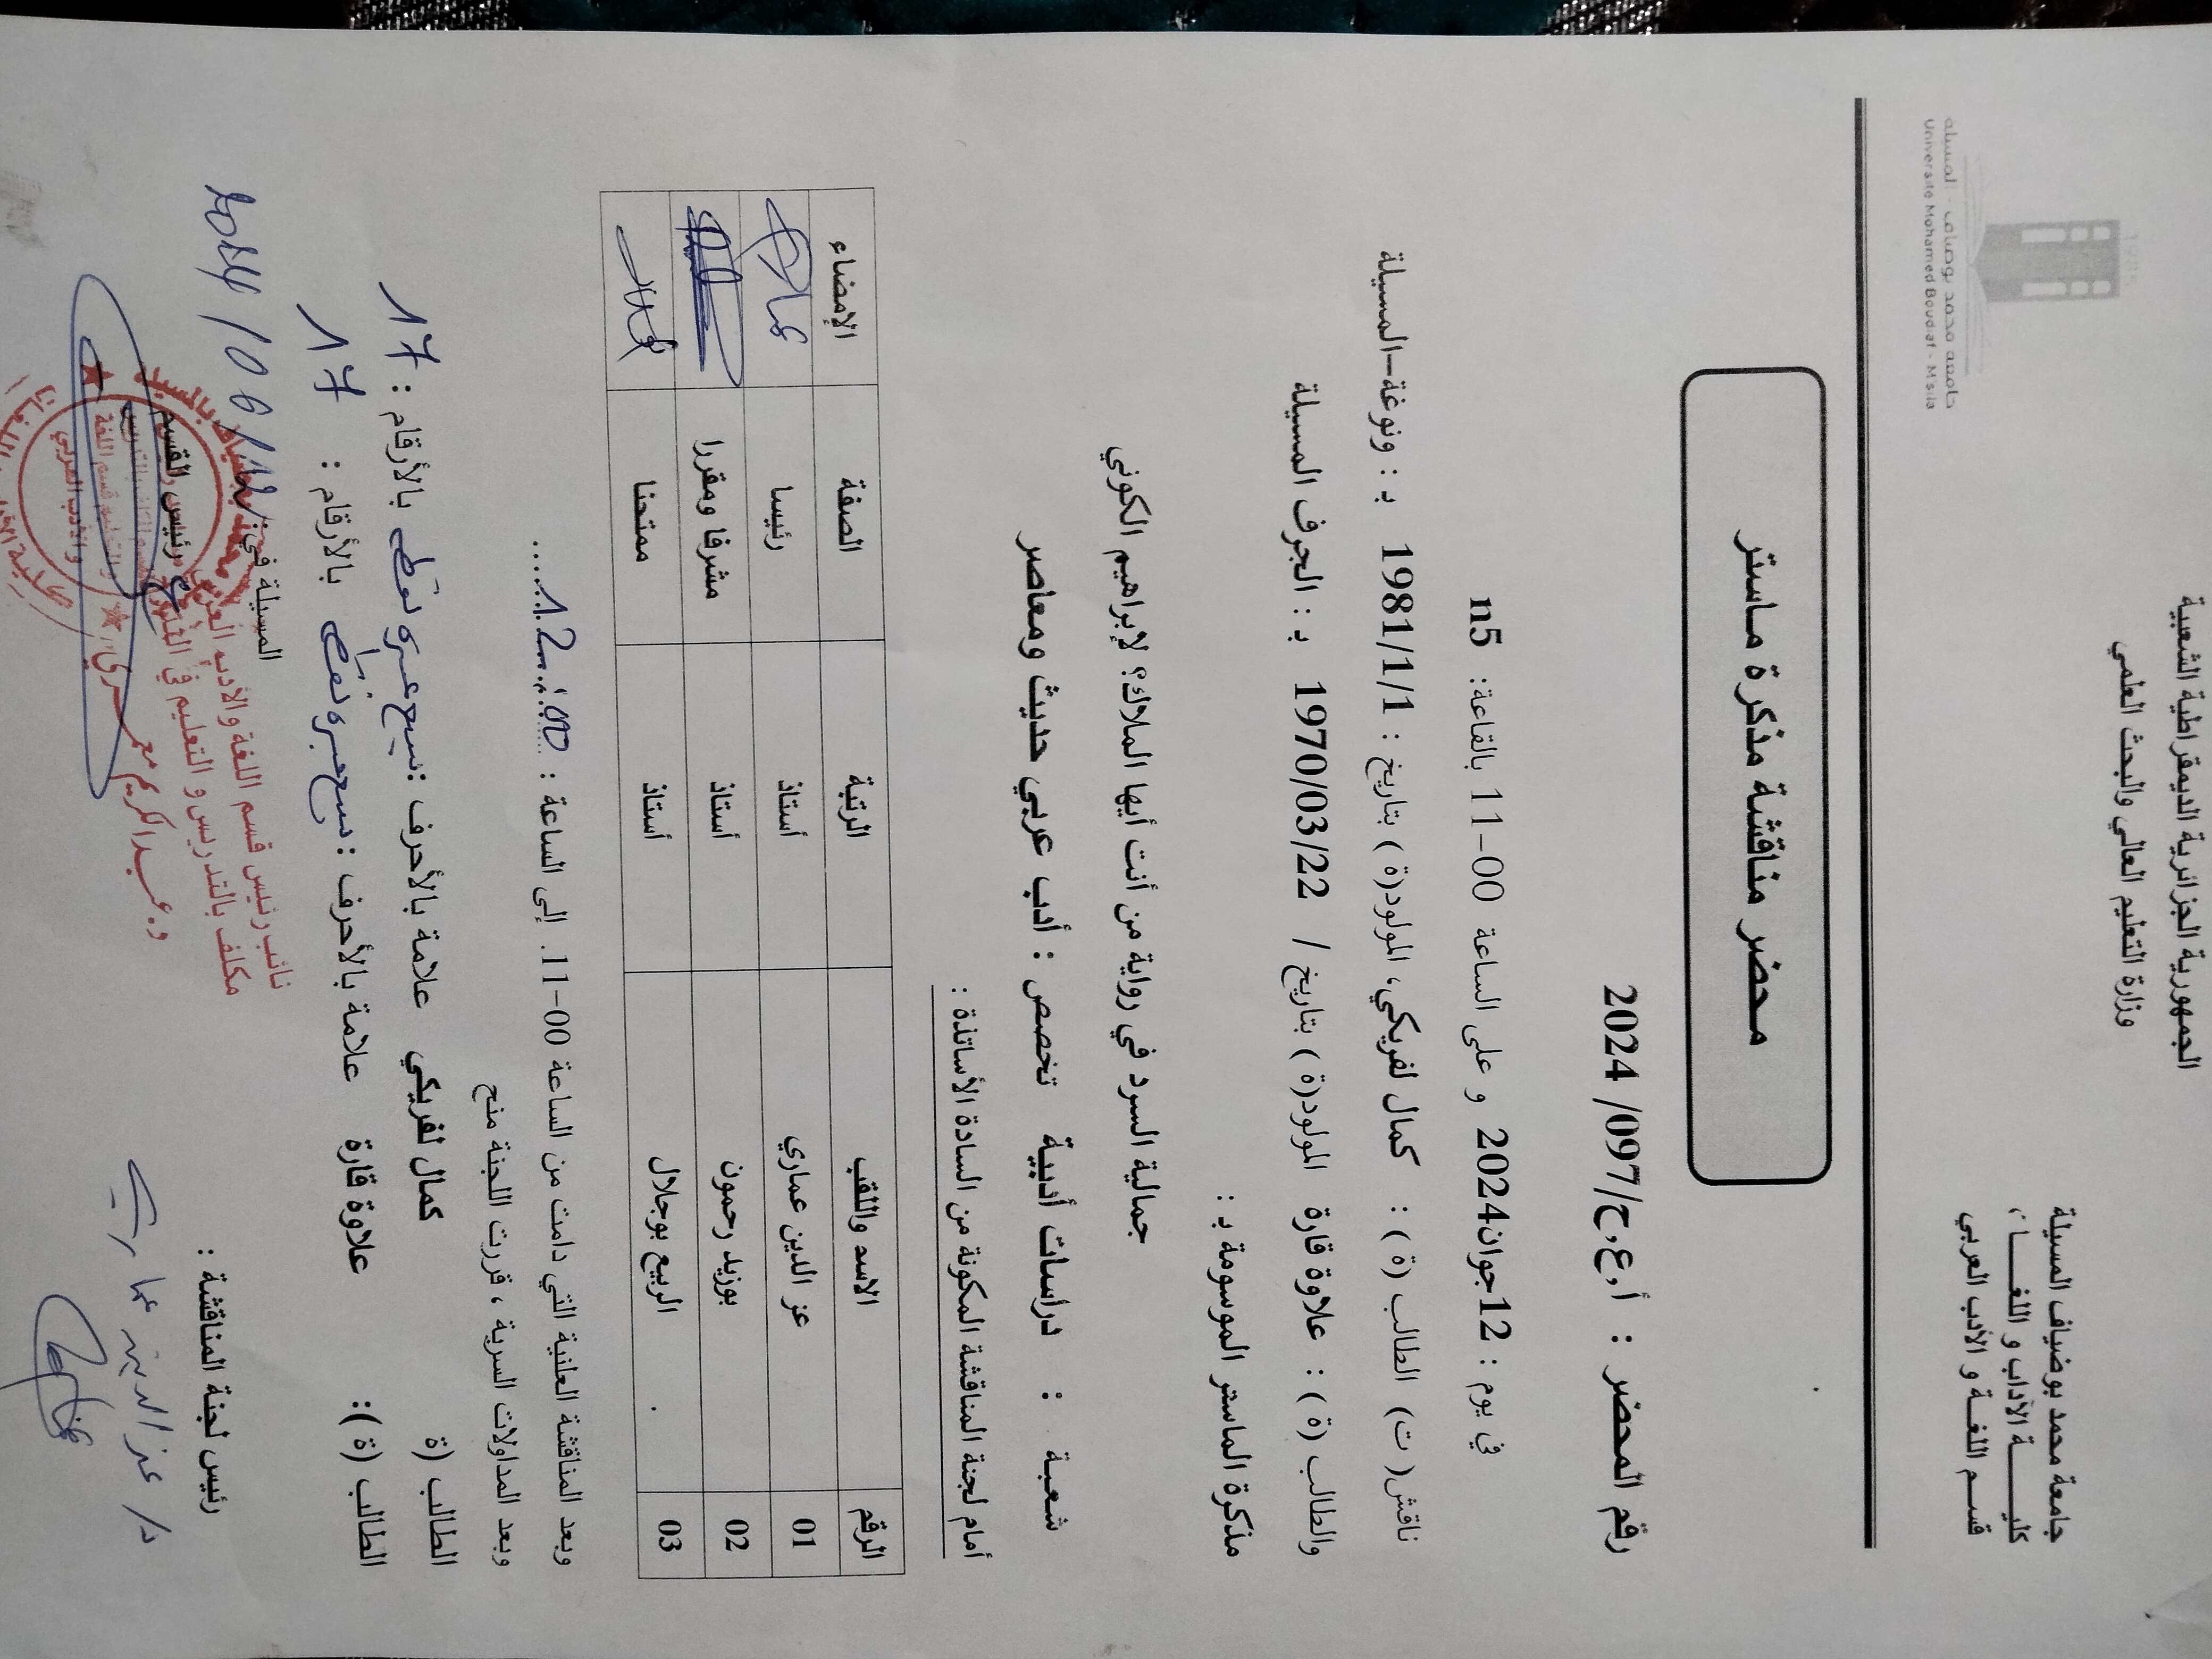 الجمهورية الجزائرية الديمقراطية الشعبية
وزارة التعليم العالي والبحث العلمي
جامعة محمد بوضياف المسيلة
كليـــــة الآداب و اللغـــات
قسم اللغة و الأدب العربي
جامعة محمد بوضياف - المسيلة
Université Mohamed Boudiaf - M'sila
محضر مناقشة مذكرة ماستر
رقم المحضر : أ.ع.ح/097/ 2024
في يوم : 12جوان2024 و على الساعة 11-00 بالقاعة: n5
ناقش( ت) الطالب (ة ) : كمال لفريكي، المولود(ة ) بتاريخ : 1981/1/1 بـ : ونوغة-المسيلة
والطالب (ة ) : علاوة قارة المولود(ة ) بتاريخ / 1970/03/22 بـ : الجرف المسيلة
مذكرة الماستر الموسومة بـ :
جمالية السرد في رواية من أنت أيها الملاك؟ لإبراهيم الكوني
شعبة : دراسات أدبية تخصص : أدب عربي حديث ومعاصر
أمام لجنة المناقشة المكونة من السادة الأساتذة :
الرقم الاسد واللقب الرتبة الصفة الإمضاء
01 عز الدين عماري أستاذ رئيسا
02 بوزيد رحمون أستاذ مشرفا ومقررا
03 الربيع بوجلال أستاذ ممتحنا
وبعد المناقشة العلنية التي دامت من الساعة 11-00. إلى الساعة : 12:00
وبعد المداولات السرية ، قررت اللجنة منح
الطالب (ة كمال لفريكي علامة بالأحرف : سبع عشرة نقطة بالأرقام : 17
الطالب (ة ): علاوة قارة علامة بالأحرف : سبع عشرة نقطة بالأرقام : 17
المسيلة في: 12/06/2024
رئيس لجنة المناقشة :
رئيس القسم
د/ عز الدين عماري
نائب رئيس قسم اللغة والأدب العربي
مكلف بالتدريس و التعليم في التدرج